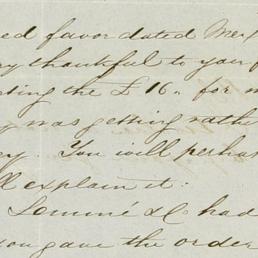 ed favor dated Mex
ry thankful to your f
ting the £ 16,, for m
was getting rathe
ey. You will perha
ll explain it.
Lemmé & Co had
you gave the order